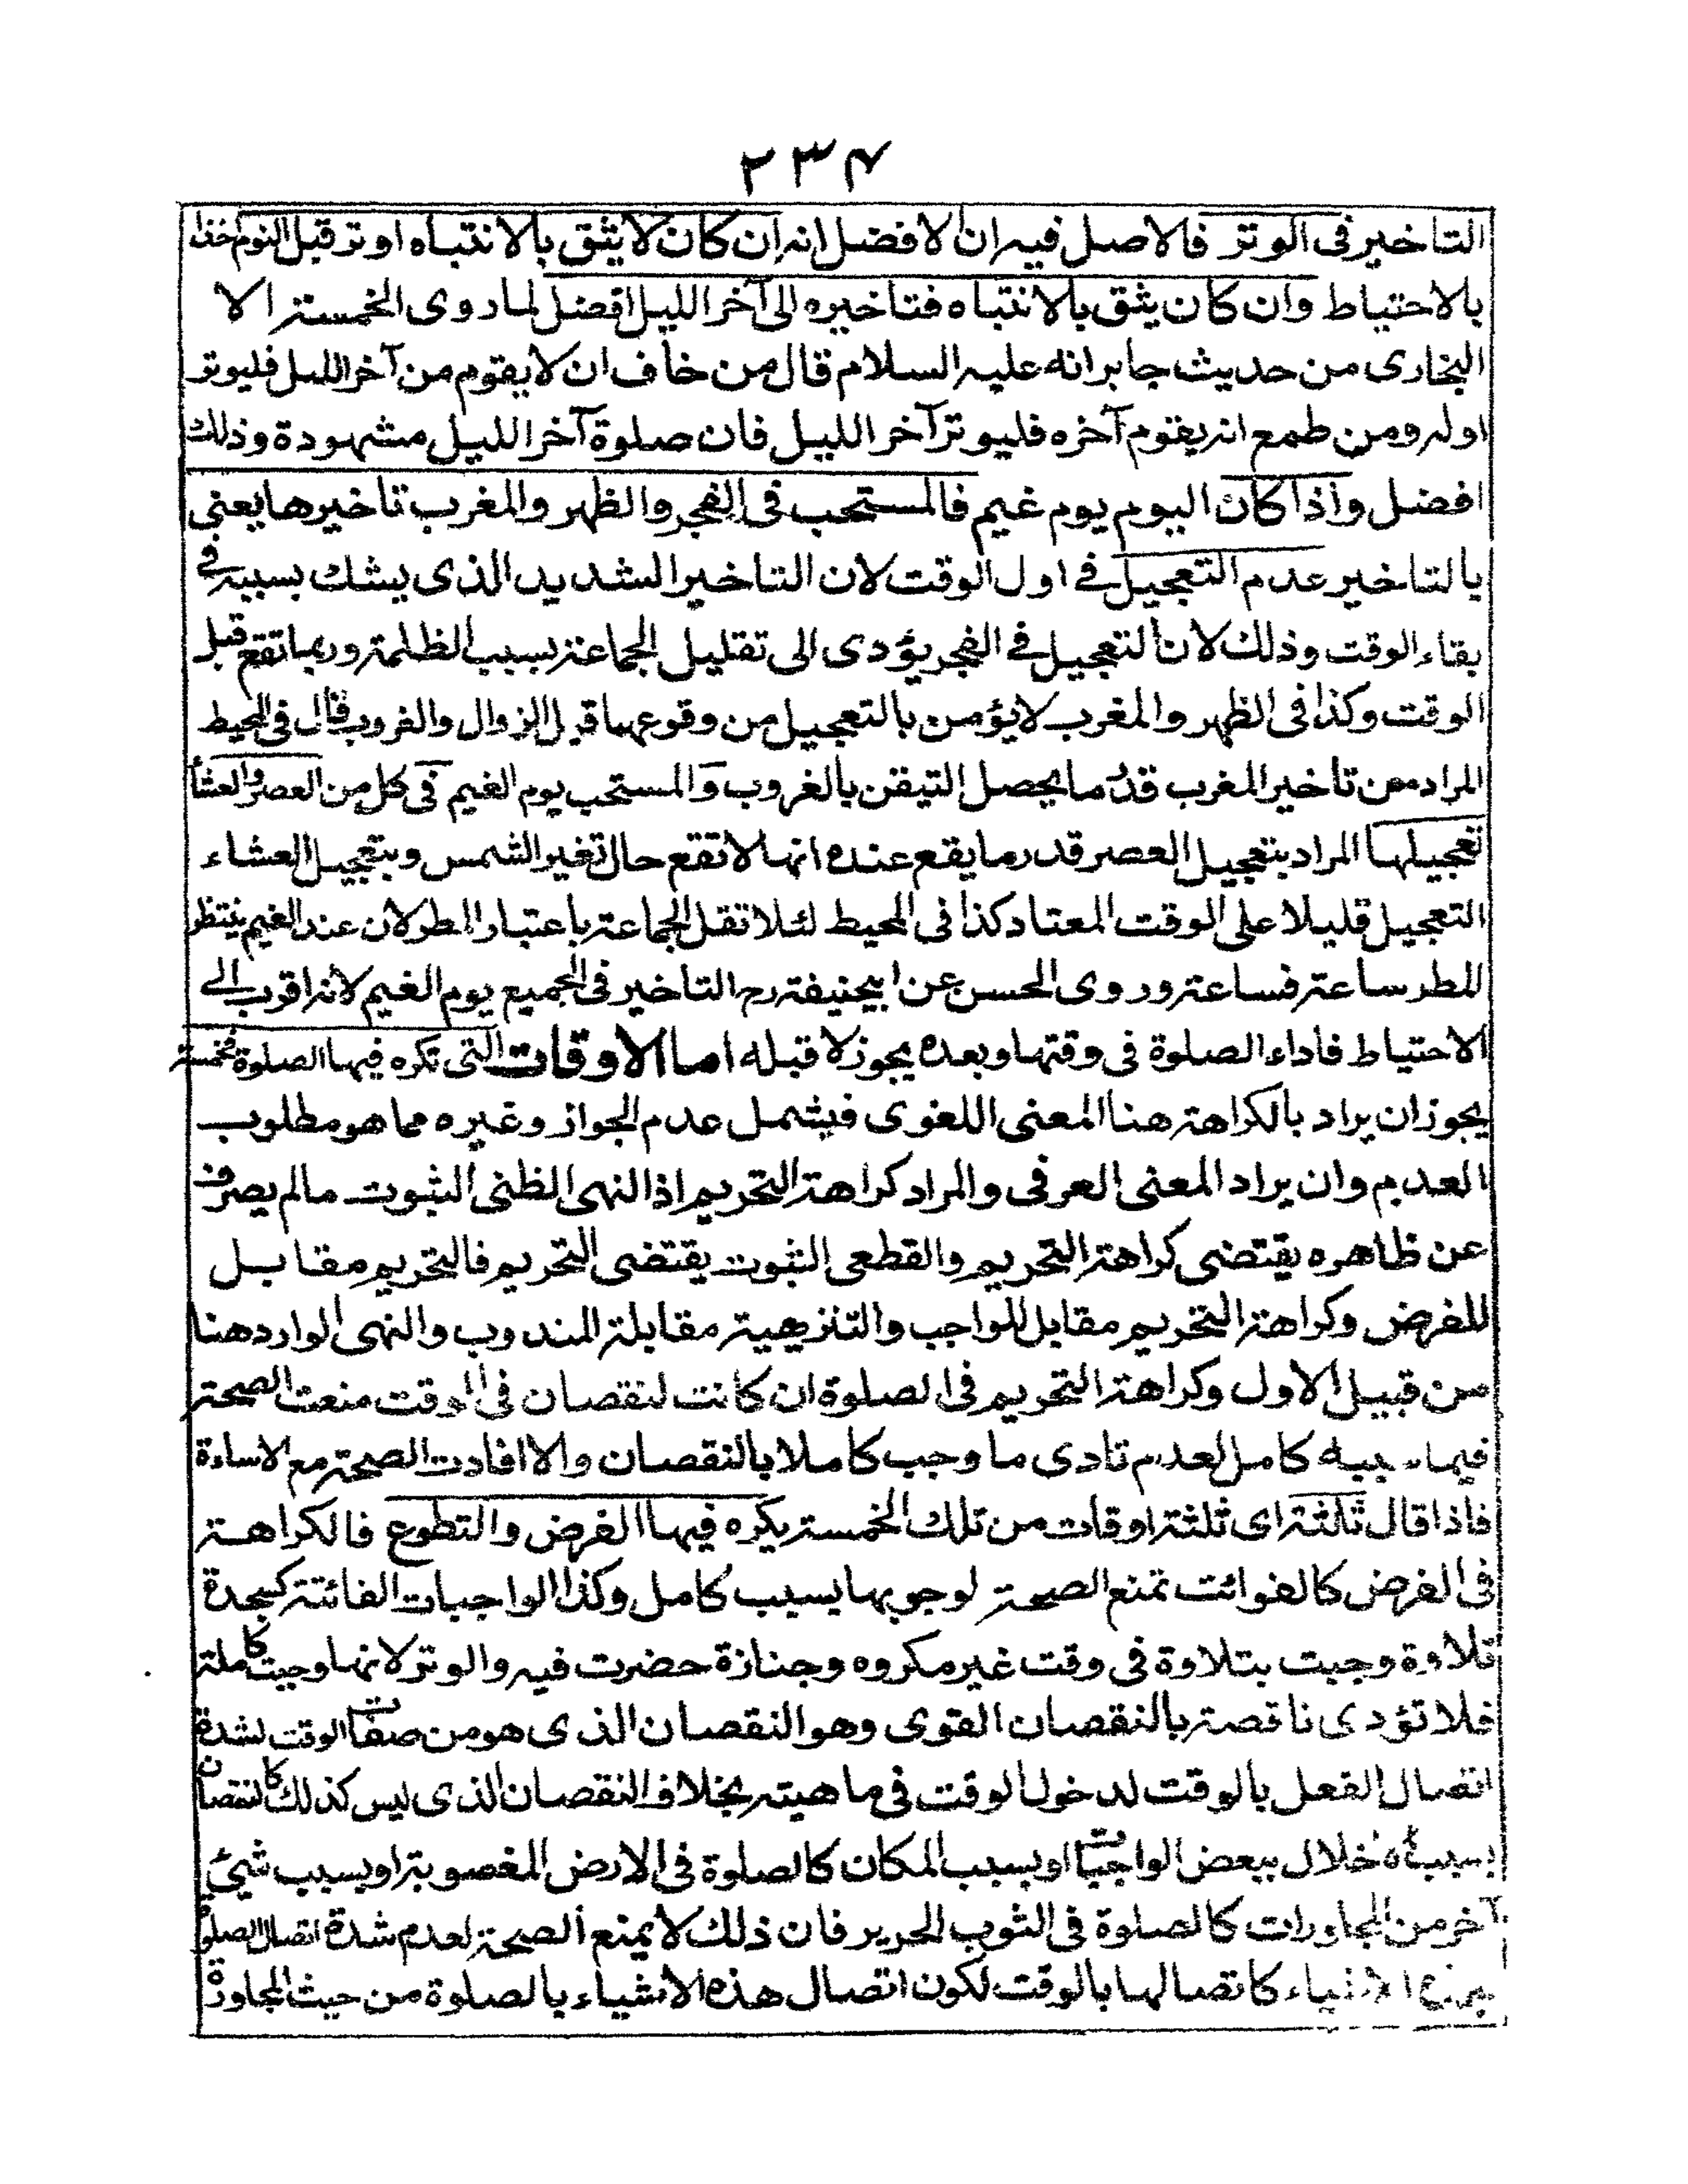 ٢٣٤
التاخير فى الوتر فالاصل فيه ان الافضل انه ان كان لا يثق بالانتباه اوتر قبل النوم اخذا
بالاحتياط وان كان يثق بالانتباه فتاخيره الى آخر الليل افضل لما روى الخمسة الا
البخارى من حديث جابر انه عليه السلام قال من خاف ان لا يقوم من آخر الليل فليوتر
اوله ومن طمع انه يقوم آخره فليوتر آخر الليل فان صلوة آخر الليل مشهودة وذلك
افضل واذا كان اليوم يوم غيم فالمستحب فى الفجر والظهر والمغرب تاخيرها يعنى
بالتاخير عدم التعجيل فے اول الوقت لان التاخير الشديد الذى يشك بسببه فے
بقاء الوقت وذلك لان التعجيل فے الفجر يؤدى الى تقليل الجماعة بسبب الظلمة وربما تقع قبل
الوقت وكذا فى الظهر والمغرب لا يؤمن بالتعجيل من وقوعهما قبل الزوال والغروب قال فى المحيط
المراد من تأخير المغرب قدر ما يحصل التيقن بالغروب والمستحب يوم الغيم فى كل من العصر والعشأ
تعجيلهما المراد بتعجيل العصر قدر ما يقع عنده انها لا تقع حال تغير الشمس وبتعجيل العشاء
التعجيل قليلا على الوقت المعتاد كذا فى المحيط لئلا تقل الجماعة باعتبار المطر لان عند الغيم ينتظر
المطر ساعة فساعة وروى الحسن عن ابيحنيفة رح التاخير فى الجميع يوم الغيم لانه اقرب الى
الاحتياط فاداء الصلوة فى وقتها وبعده يجوز لا قبله اما الاوقات التى تكره فيها الصلوة فخمسة
يجوز ان يراد بالكراهة هنا المعنى اللغوى فيشمل عدم الجواز وغيره مما هو مطلوب
العدم وان يراد المعنى العرفى والمراد كراهة التحريم اذ النهى الظنى الثبوت مالم يصرف
عن ظاهره يقتضى كراهة التحريم والقطعى الثبوت يقتضى التحريم فالتحريم مقابل
للفرض وكراهة التحريم مقابل للواجب والتنزيهية مقابلة المندوب والنهى الوارد هنا
من قبيل الاول وكراهة التحريم فى الصلوة ان كانت لنقصان فى الوقت منعت الصحة
فيما سببه كامل لعدم تادى ما وجب كاملا بالنقصان والا افادت الصحة مع الاساءة
فاذا قال ثلثة اى ثلثة اوقات من تلك الخمسة يكره فيها الفرض والتطوع فالكراهة
فى الفرض كالفوائت تمنع الصحة لوجوبها بسبب كامل وكذا الواجبات الفائتة كسجدة
تلاوة وجبت بتلاوة فى وقت غير مكروه وجنازة حضرت فيه والوتر لانها وجبت كاملة
فلا تؤدى ناقصة بالنقصان القوى وهو النقصان الذى هو من صفات الوقت لشدة
اتصال الفعل بالوقت لدخول الوقت فى ماهيته بخلاف النقصان الذى ليس كذلك كالنقصان
بسبب خلال ببعض الواجبات او بسبب المكان كالصلوة فى الارض المغصوبة او بسبب شيئ
آخر من المجاورات كالصلوة فى الثوب الحرير فان ذلك لا يمنع الصحة لعدم شدة اتصال الصلوة
الاشياء كاتصالها بالوقت لكون اتصال هذه الاشياء بالصلوة من حيث المجاورة